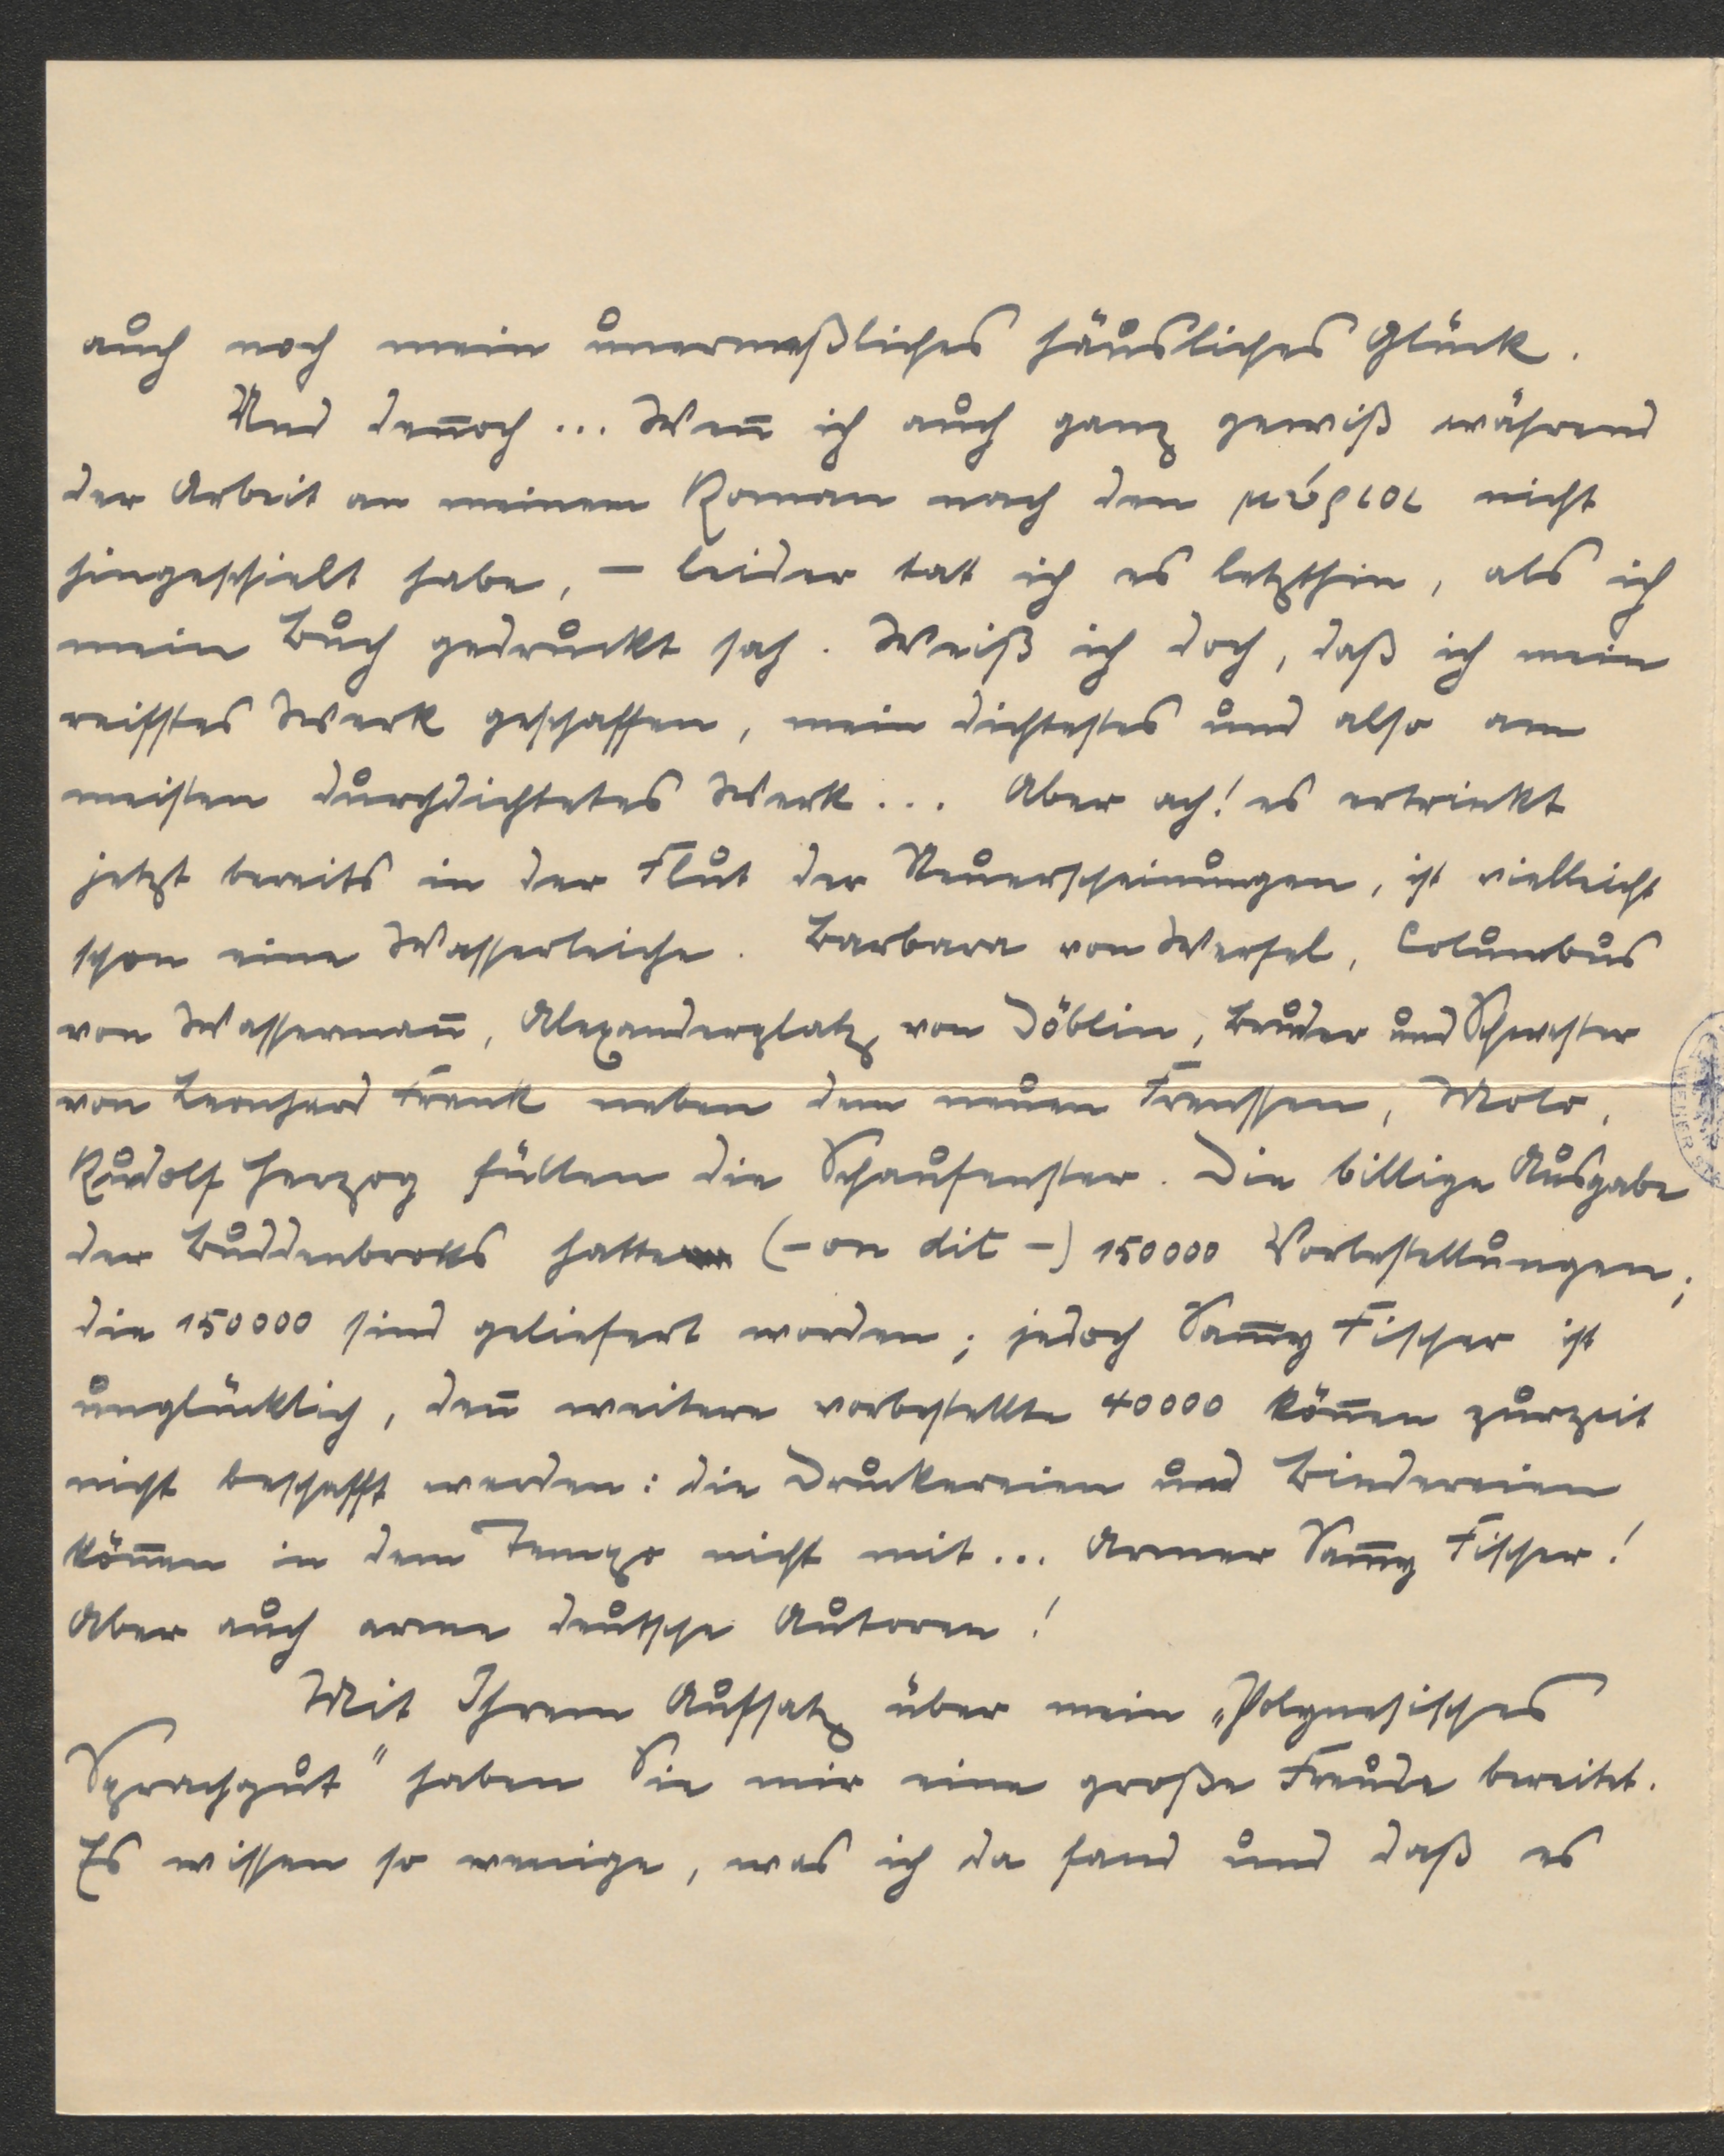 auch noch mein unermeßliches häusliches Glück.
Und den̄och ... Wen̄ ich auch ganz gewiß während
der Arbeit an meinem Roman nach den μύριοι nicht
hingeschielt habe, – leider tat ich es letzthin, als ich
mein Buch gedruckt sah. Weiß ich doch, daß ich mein
reifstes Werk geschaffen, mein dichtestes und also am
meisten durchdichtetes Werk ... Aber ach! es ertrinkt
jetzt bereits in der Flut der Neuerscheinungen, ist vielleicht
schon eine Wasserleiche. Barbara von Werfel, Columbus
von Wasserman̄, Alexanderplatz von Döblin, Bruder und Schwester
von Leonhard Frank neben dem neuen Frenssen, Molo,
Rudolf Herzog füllen die Schaufenster. Die billige Ausgabe
der Buddenbrooks hatte (– on dit –) 150000 Vorbestellungen;
die 150000 sind geliefert worden; jedoch Sam̄y Fischer ist
unglücklich, den̄ weitere vorbestellte 40000 kön̄en zurzeit
nicht beschafft werden: die Druckereien und Bindereien
kön̄en in dem Tempo nicht mit ... Armer Sam̄y Fischer!
Aber auch arme deutsche Autoren!
Mit Ihrem Aufsatz über mein „Polynesisches
Sprachgut" haben Sie mir eine große Freude bereitet.
Es wissen so wenige, was ich da fand und daß es